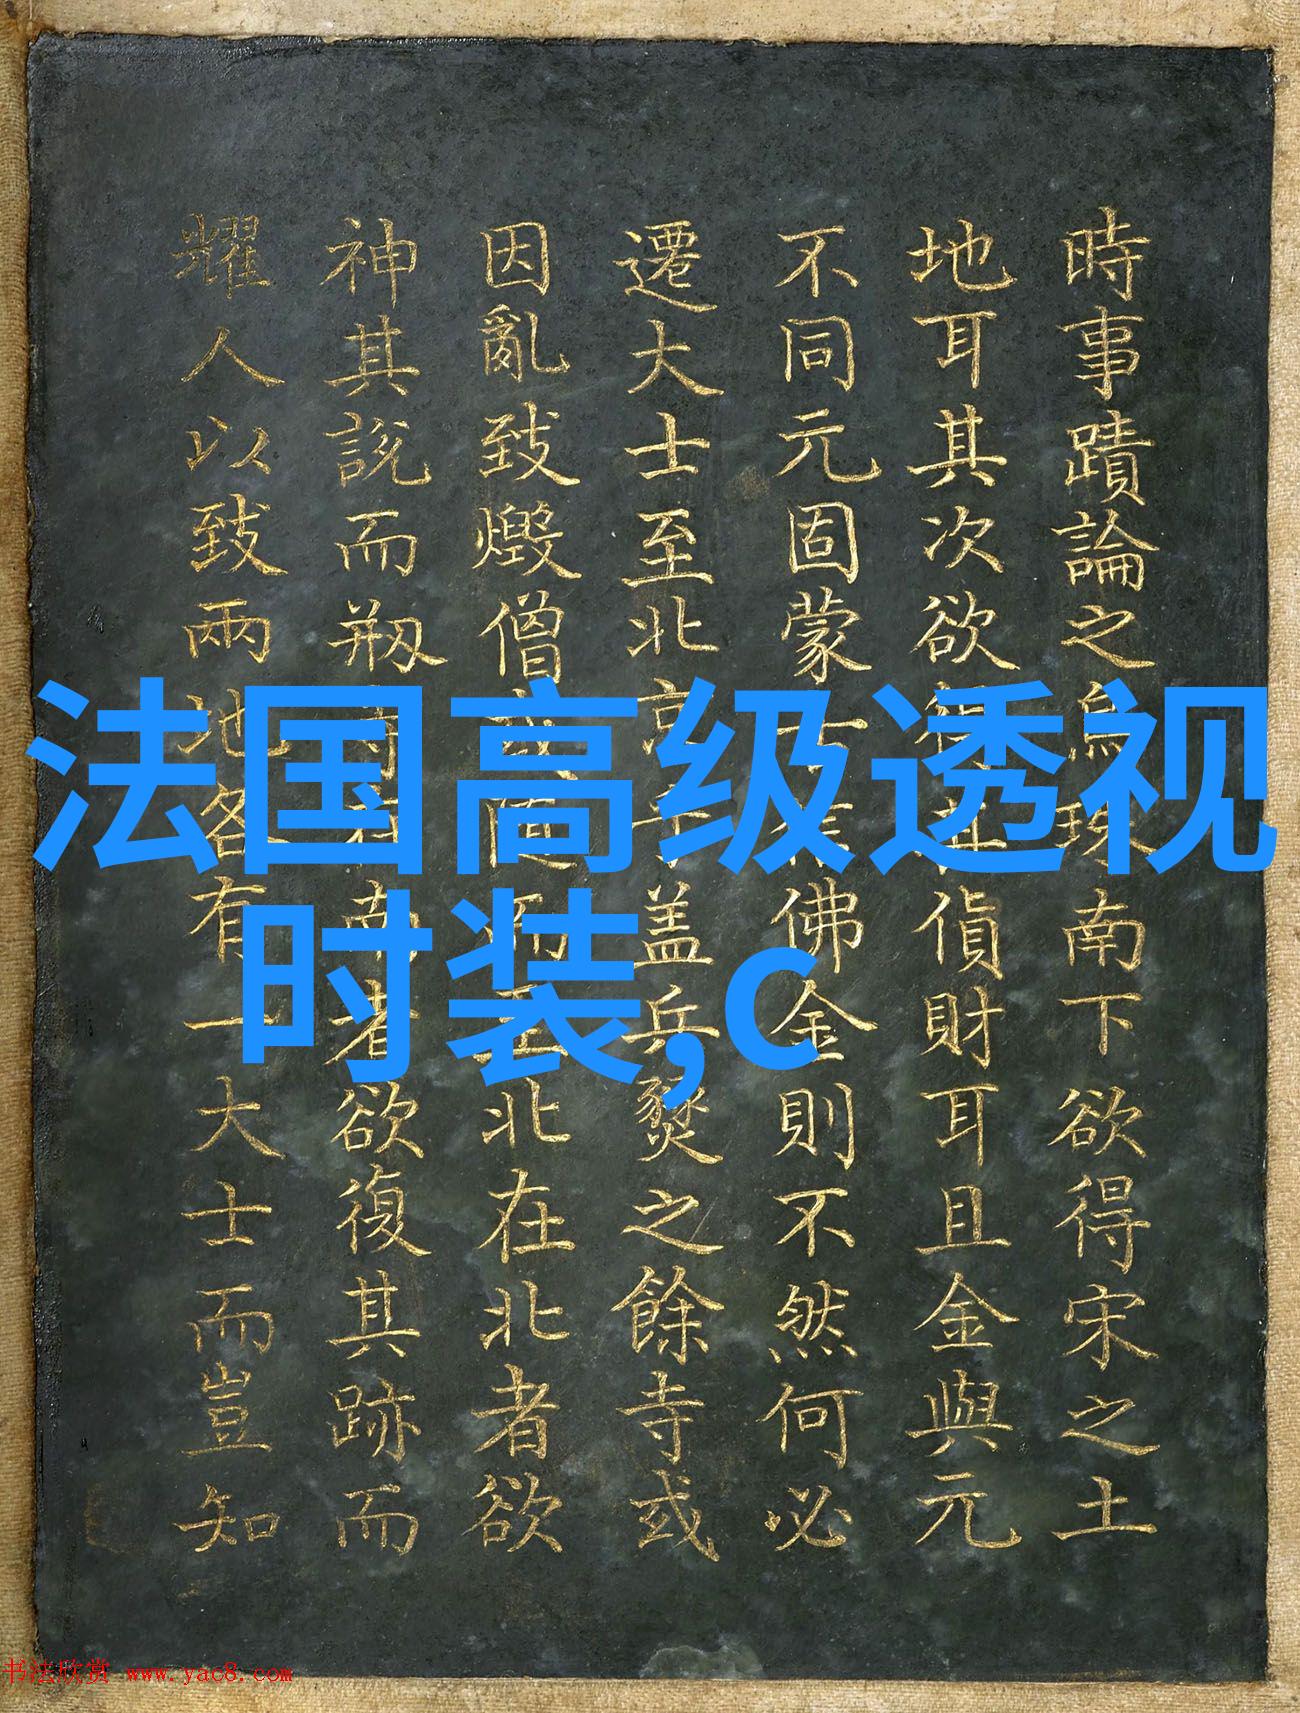 法国高级透视
时装,c
時事蹟論之烏珠南下欲得宋之土
地耳其次欲得貨財耳且金與元
不同元固蒙佛金則不然何必
遷大士至北京乎盖兵燹之餘寺或
因亂致燬僧或隨而至北在北者欲
神其說而刱寺在南者欲復其跡而
耀人以致兩地各有一大士而豈知
书法欣赏 www.yac8.com